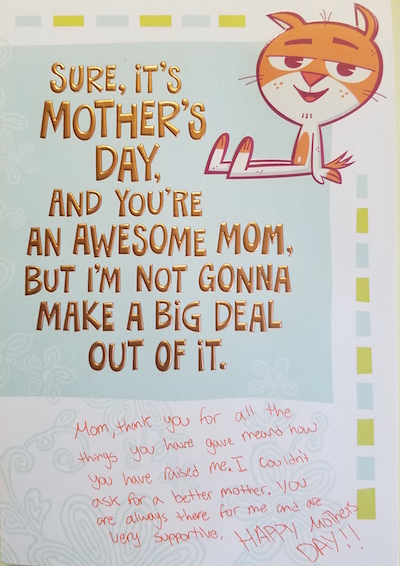 SURE, iT'S
MOTHER'S
DAY,
AND YOU'RE
AN AWESOME MOM,
BUT I'M NOT GONNA
MAKE A BiG DEAL
OUT OF iT.
Mom, thank you for all the
things you have gave me and how
you have raised me. I couldn't
ask for a better mother. You
are always there for me and are
very supportive. HAPPY MOTHERS
DAY!!